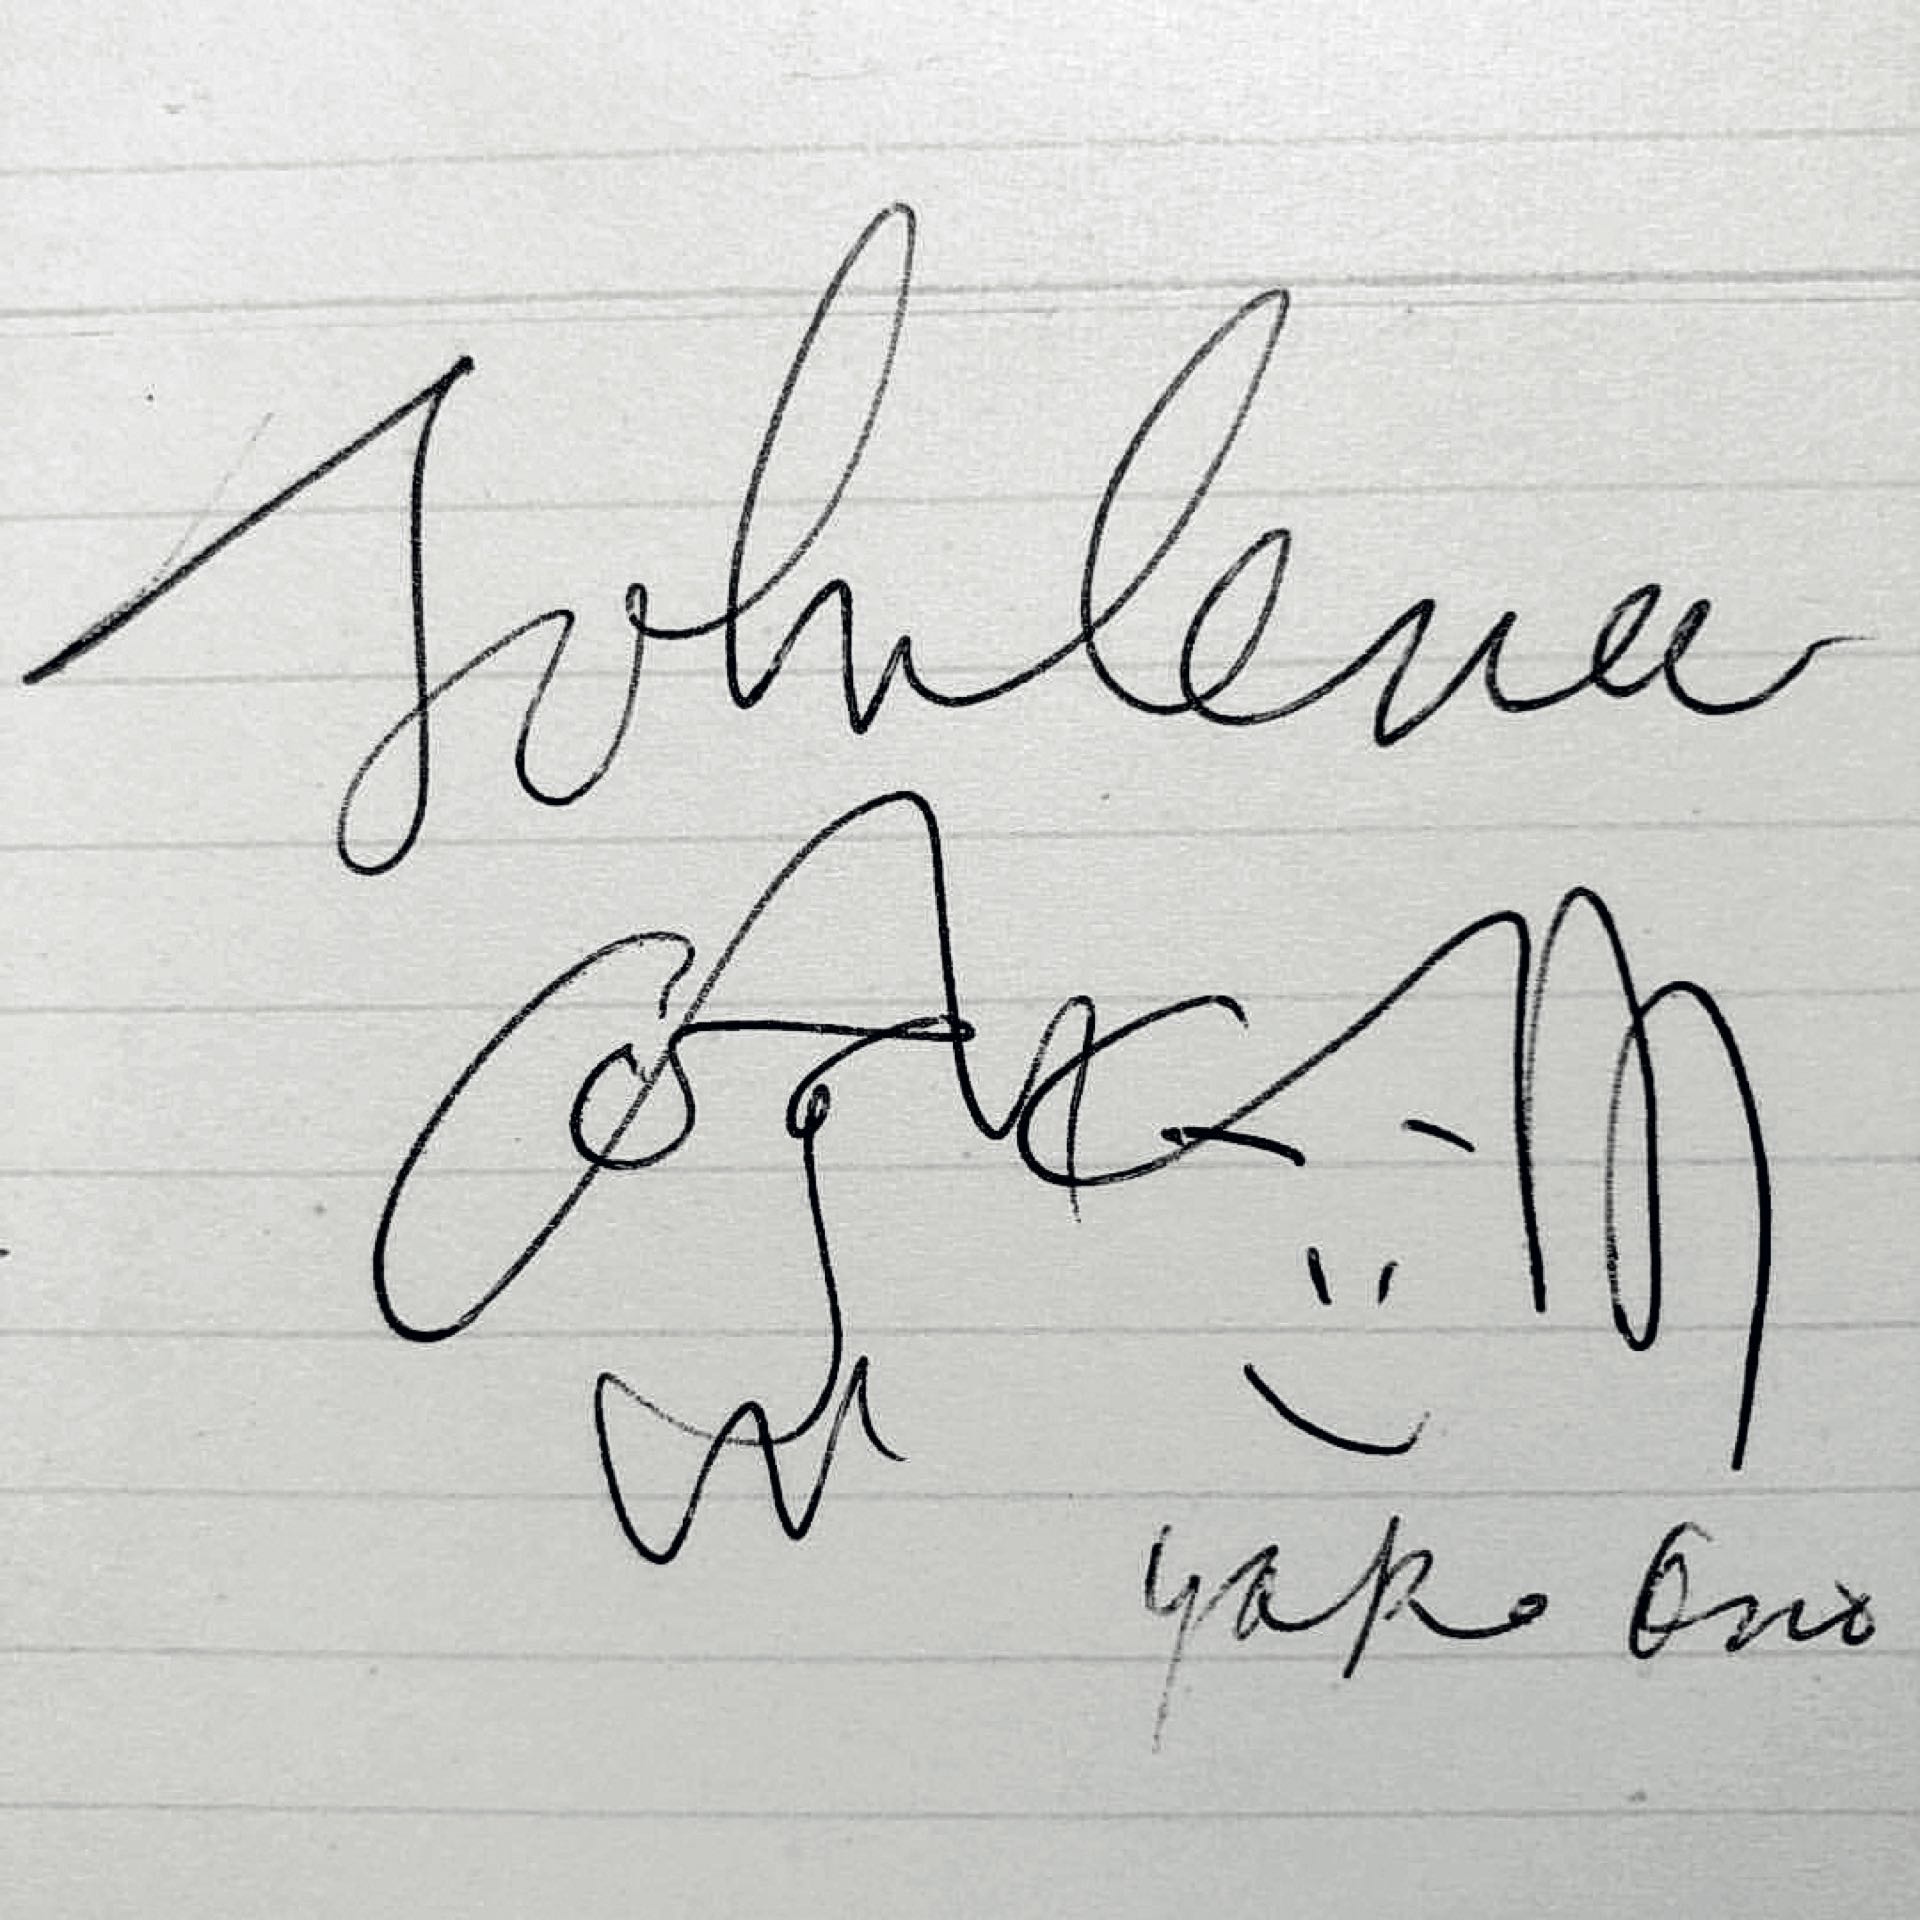 John Lennon
yoko ono